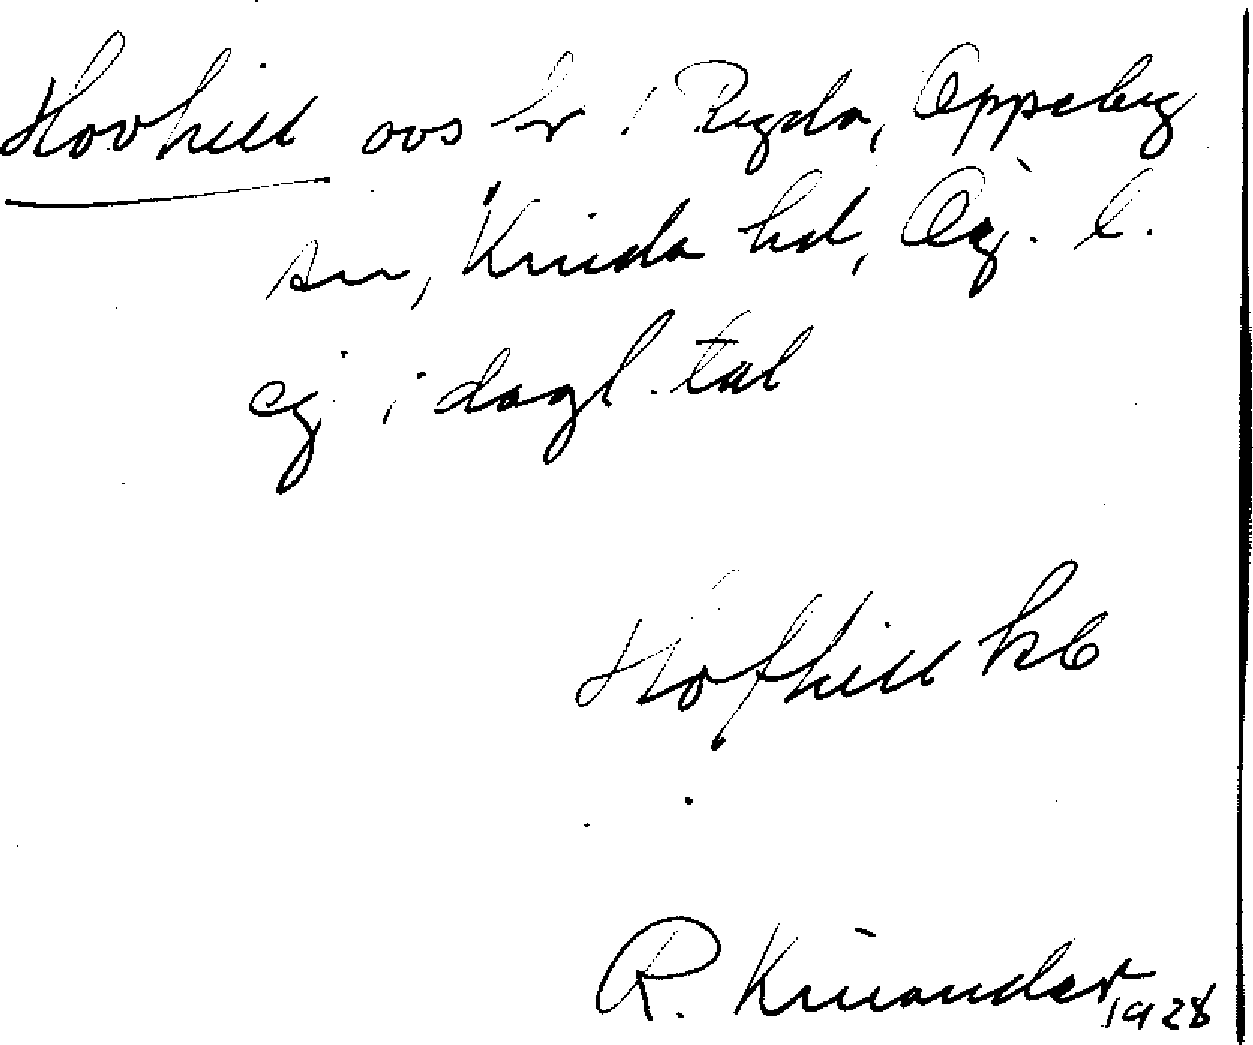 Hovhill oos br i Rygda, Oppeby
sn, Kinda hd, Ög. l.
ej i dagl. tal
Hofhill kb
R. Kinander 1928